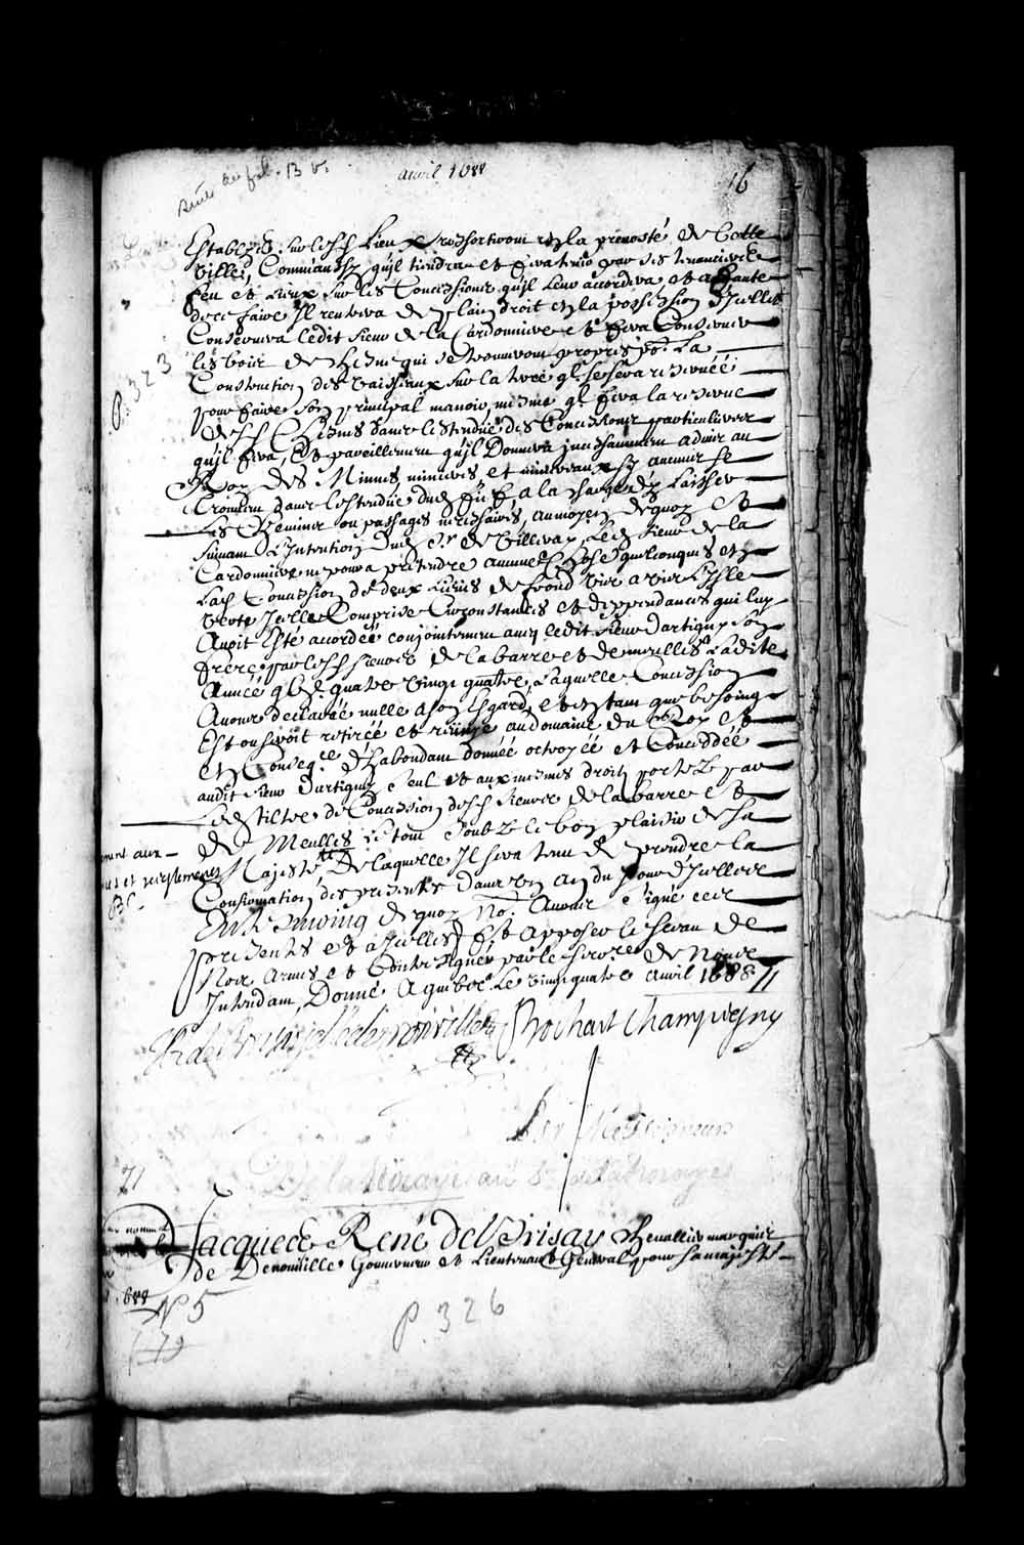 avril 1688
16
p. 323
Establis sur lesd Lieux ressortiront en la prevosté de Cette
villei, Commandz quil tiendra et fera tenir par ses tenanciers
feu et Lieux sur les Concessions quil leur accordera et a faute
de ce faire Il rentrera de plain droit en la possession d'Icelles
Conservera ledit sieur de la Cardonniere et fera Conserver
les bois de Chesne qui se trouveront propres po.r La
Construction des vaisseaux sur la terre ql se sera reservée
pour faire son principal manoir, mesme ql fera la reserve
desd Chesnes dans lestendüe des Concessions particulieres
quil fera, Et pareillement quil Donnera incessamment advis au
Roy des Minnes, minieres et mineraux sy aucunes se
Trouvent dans lestendüe dud fief, a la charge dy Laisser
Les Chemins ou passages necessaires, au moyen dequoy Et
suivant L'Intention dud S.r de Villeray, Led. sieur de la
Cardonniere ne pourra pretendre aucunes Choses quelconques en
Lad Concession de deux Lieües de front vis a vis L'Isle
verte Icelle Comprise Circonstances et deppendances qui luy
Avoit Esté accordée conjointement avec ledit sieur Dartigny son
frere, par lesd sieurs de la barre et demeulles Ladite
Année gbjc quatre vingt quatre, Laquelle Concession
Avons declarée nulle a son Esgard, et en tant que besoing
Est ou seroit retirée et reünye au domaine du Roy Et
En Conseq.ce d'habondant donnée octroyée et Conceddée
audit sieur Dartigny seul Et aux mesmes droits portez par
Led tiltre de Concession desd sieurs de la barre Et
de Meulles Le tout soubz le bon plaisir de sa
Majesté De laquelle Il sera tenu de prendre la
Confirmation des presentes dans un An du jour d'Icelles
En tesmoing de quoy No. Avons signé ces
presentes et a Icelles fait apposer le sceau de
Nos Armes et Contresigner par le secre.re de Nous
Intendant, Donné A quebec Le vingt quatre avril 1688 //
J R de Brisay M de denonville Bochart Champigny
Par Messeigneurs
71
Jacques René de Brisay Chevallier marquis
de Denonville Gouverneur et Lieutenant General pour sa majesté
688
N° 5
p. 326